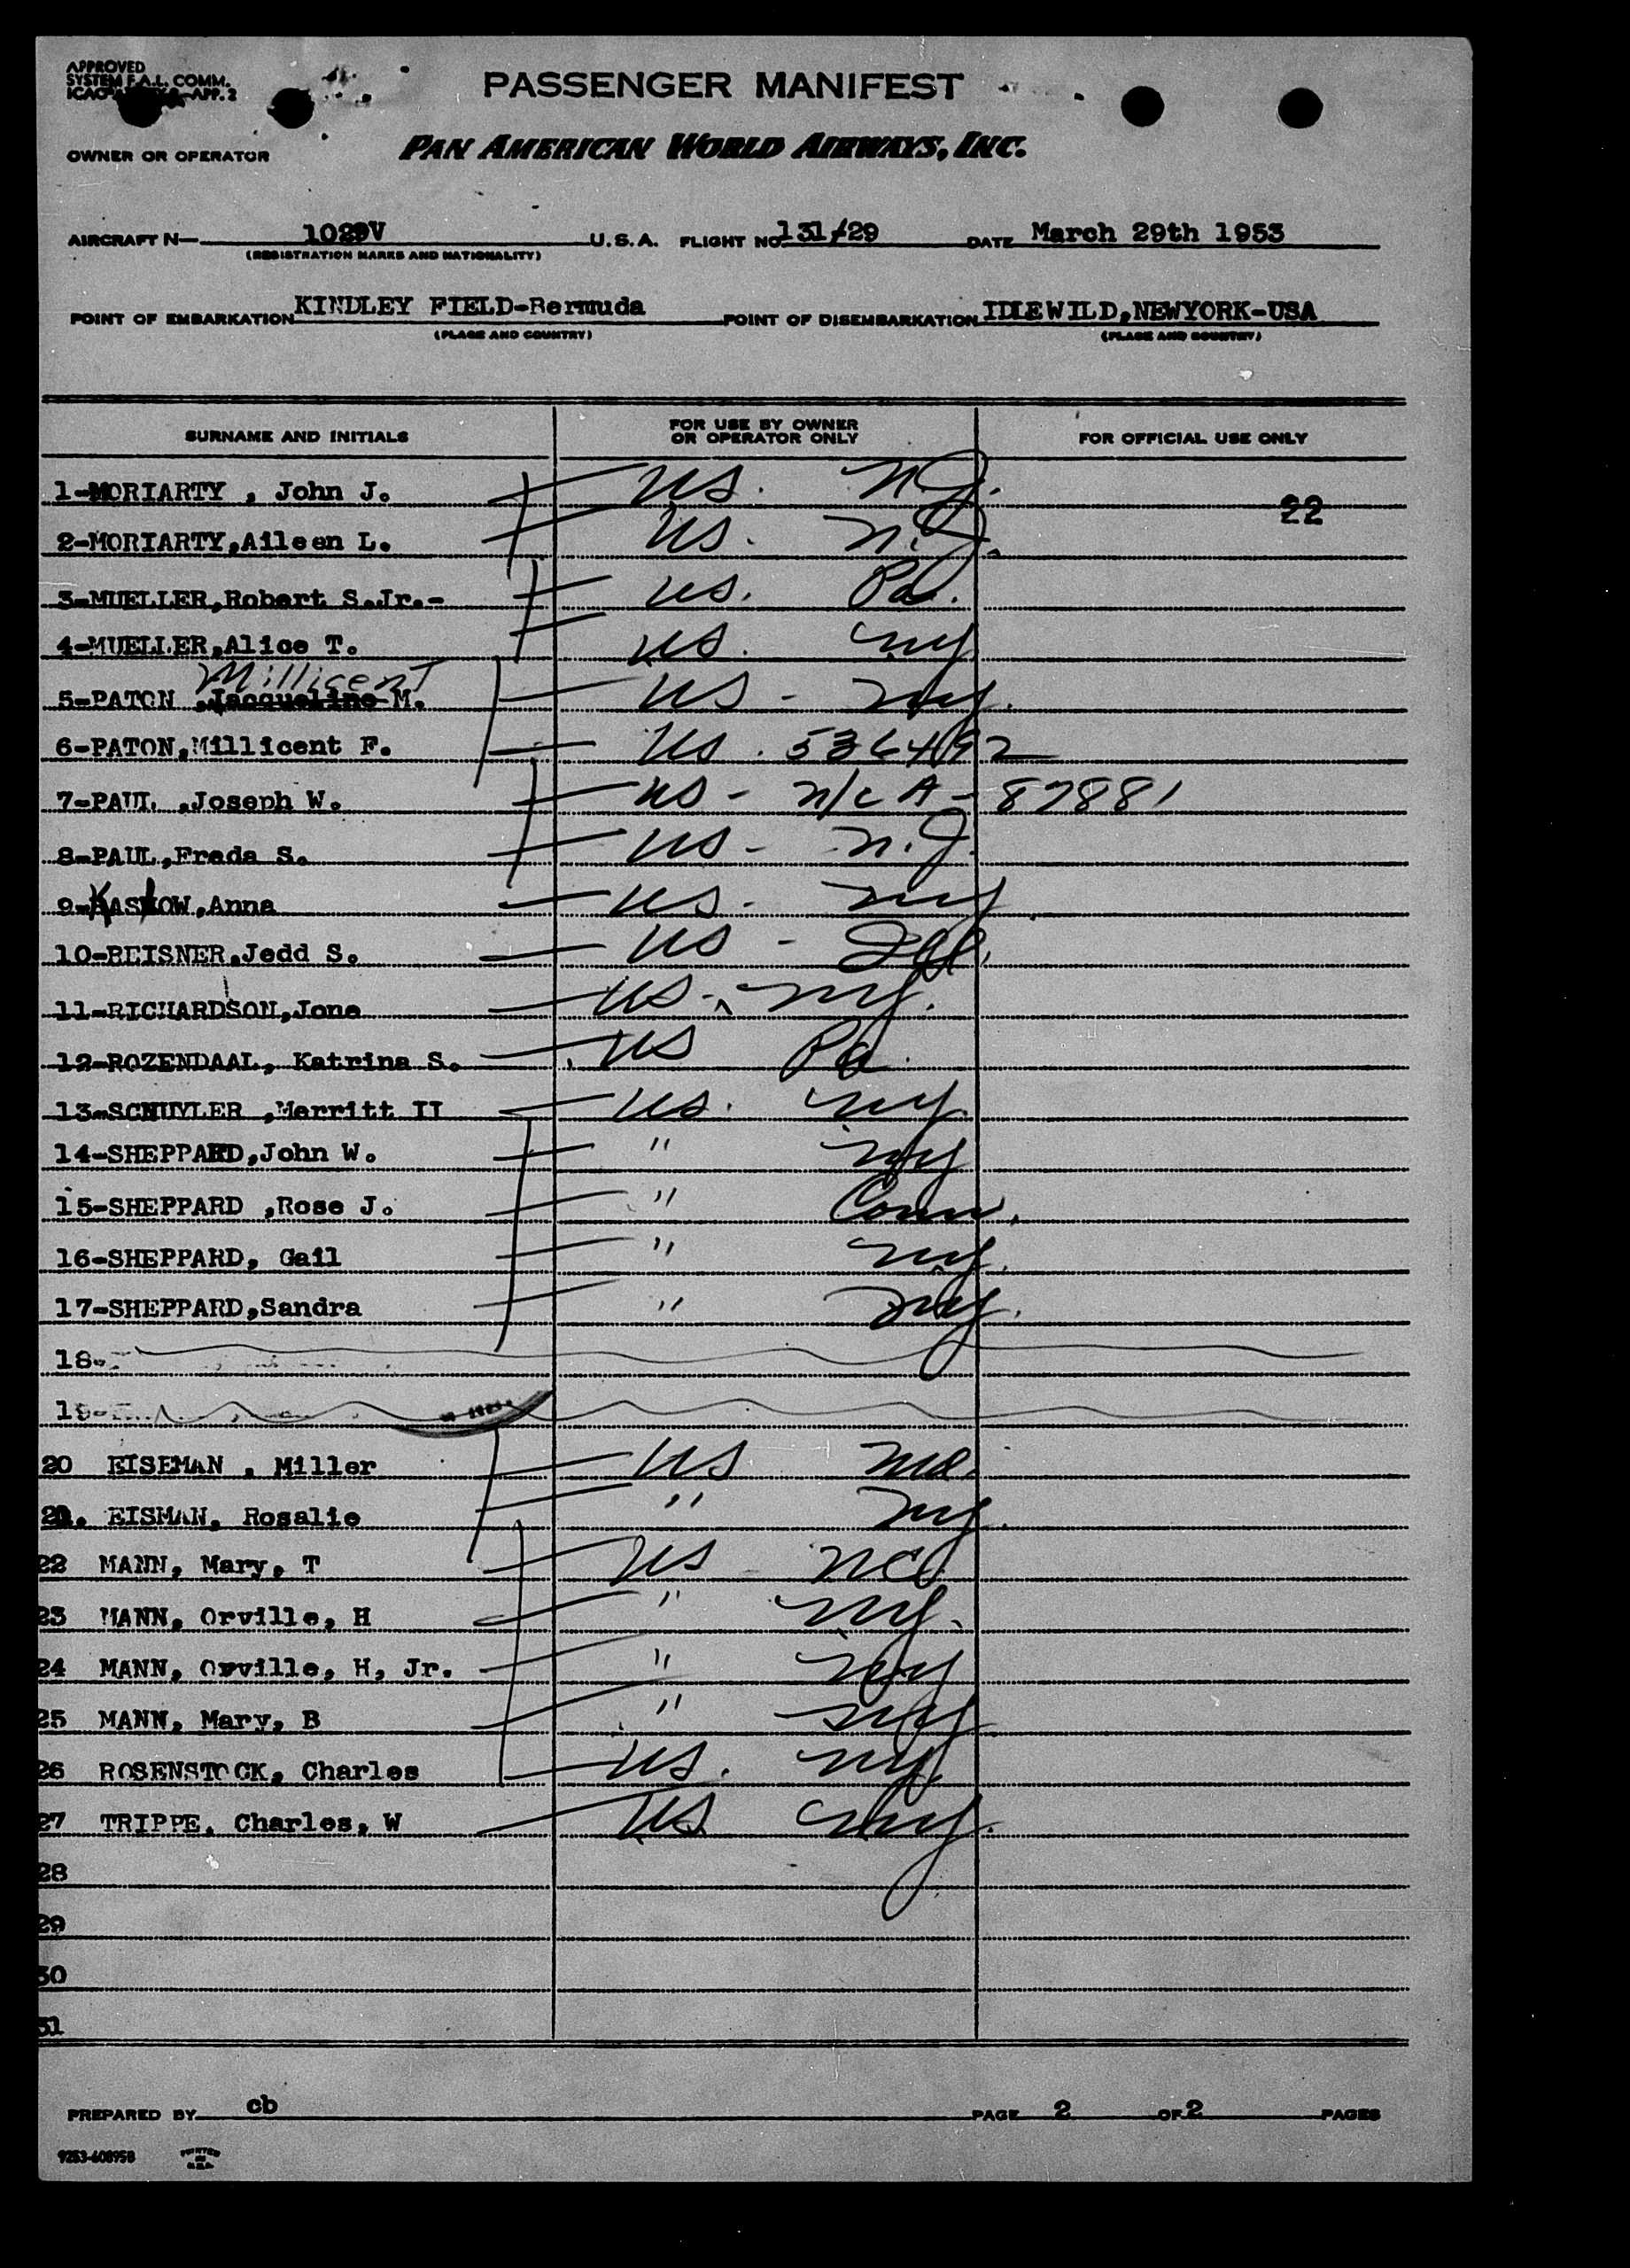 APPROVED
SYSTEM F.A.L. COMM.
PASSENGER MANIFEST
OWNER OR OPERATOR PAN AMERICAN WORLD AIRWAYS, INC.
AIRCRAFT N— 1029V U.S.A. FLIGHT NO 131/29 DATE March 29th 1953
(REGISTRATION MARKS AND NATIONALITY)
POINT OF EMBARKATION KINDLEY FIELD-Bermuda POINT OF DISEMBARKATION IDLEWILD,NEWYORK-USA
(PLACE AND COUNTRY) (PLACE AND COUNTRY)
SURNAME AND INITIALS FOR USE BY OWNER OR OPERATOR ONLY FOR OFFICIAL USE ONLY
1-MORIARTY , John J. US. N.J. 22
2-MORIARTY,Aileen L. US. N.J.
3-MUELLER,Robert S.Jr.- US. Pa.
4-MUELLER,Alice T. US. NY
Millicent
5-PATON ,Jacqueline M. US - NY.
6-PATON,Millicent F. US. 536492
7-PAUL ,Joseph W. US - N/C A - 87881
8-PAUL,Freda S. US - N.J.
9-KASKOW,Anna US. NY
10-REISNER,Jedd S. US - Ill.
11-RICHARDSON,Jone US - NY.
12-ROZENDAAL, Katrina S. US Pa.
13-SCHUYLER ,Merritt II US. NY.
14-SHEPPARD,John W. " NY
15-SHEPPARD ,Rose J. " Conn.
16-SHEPPARD, Gail " NY.
17-SHEPPARD,Sandra " NY.
18-
19-
20 EISEMAN , Miller US Md.
21. EISMAN, Rosalie " NY.
22 MANN, Mary, T US NC
23 MANN, Orville, H " NY.
24 MANN, Orville, H, Jr. " NY
25 MANN, Mary, B " NY
26 ROSENSTOCK, Charles US. NY
27 TRIPPE, Charles, W US NY.
28
29
30
31
PREPARED BY cb PAGE 2 OF 2 PAGES
9253-608958 PRINTED IN U.S.A.